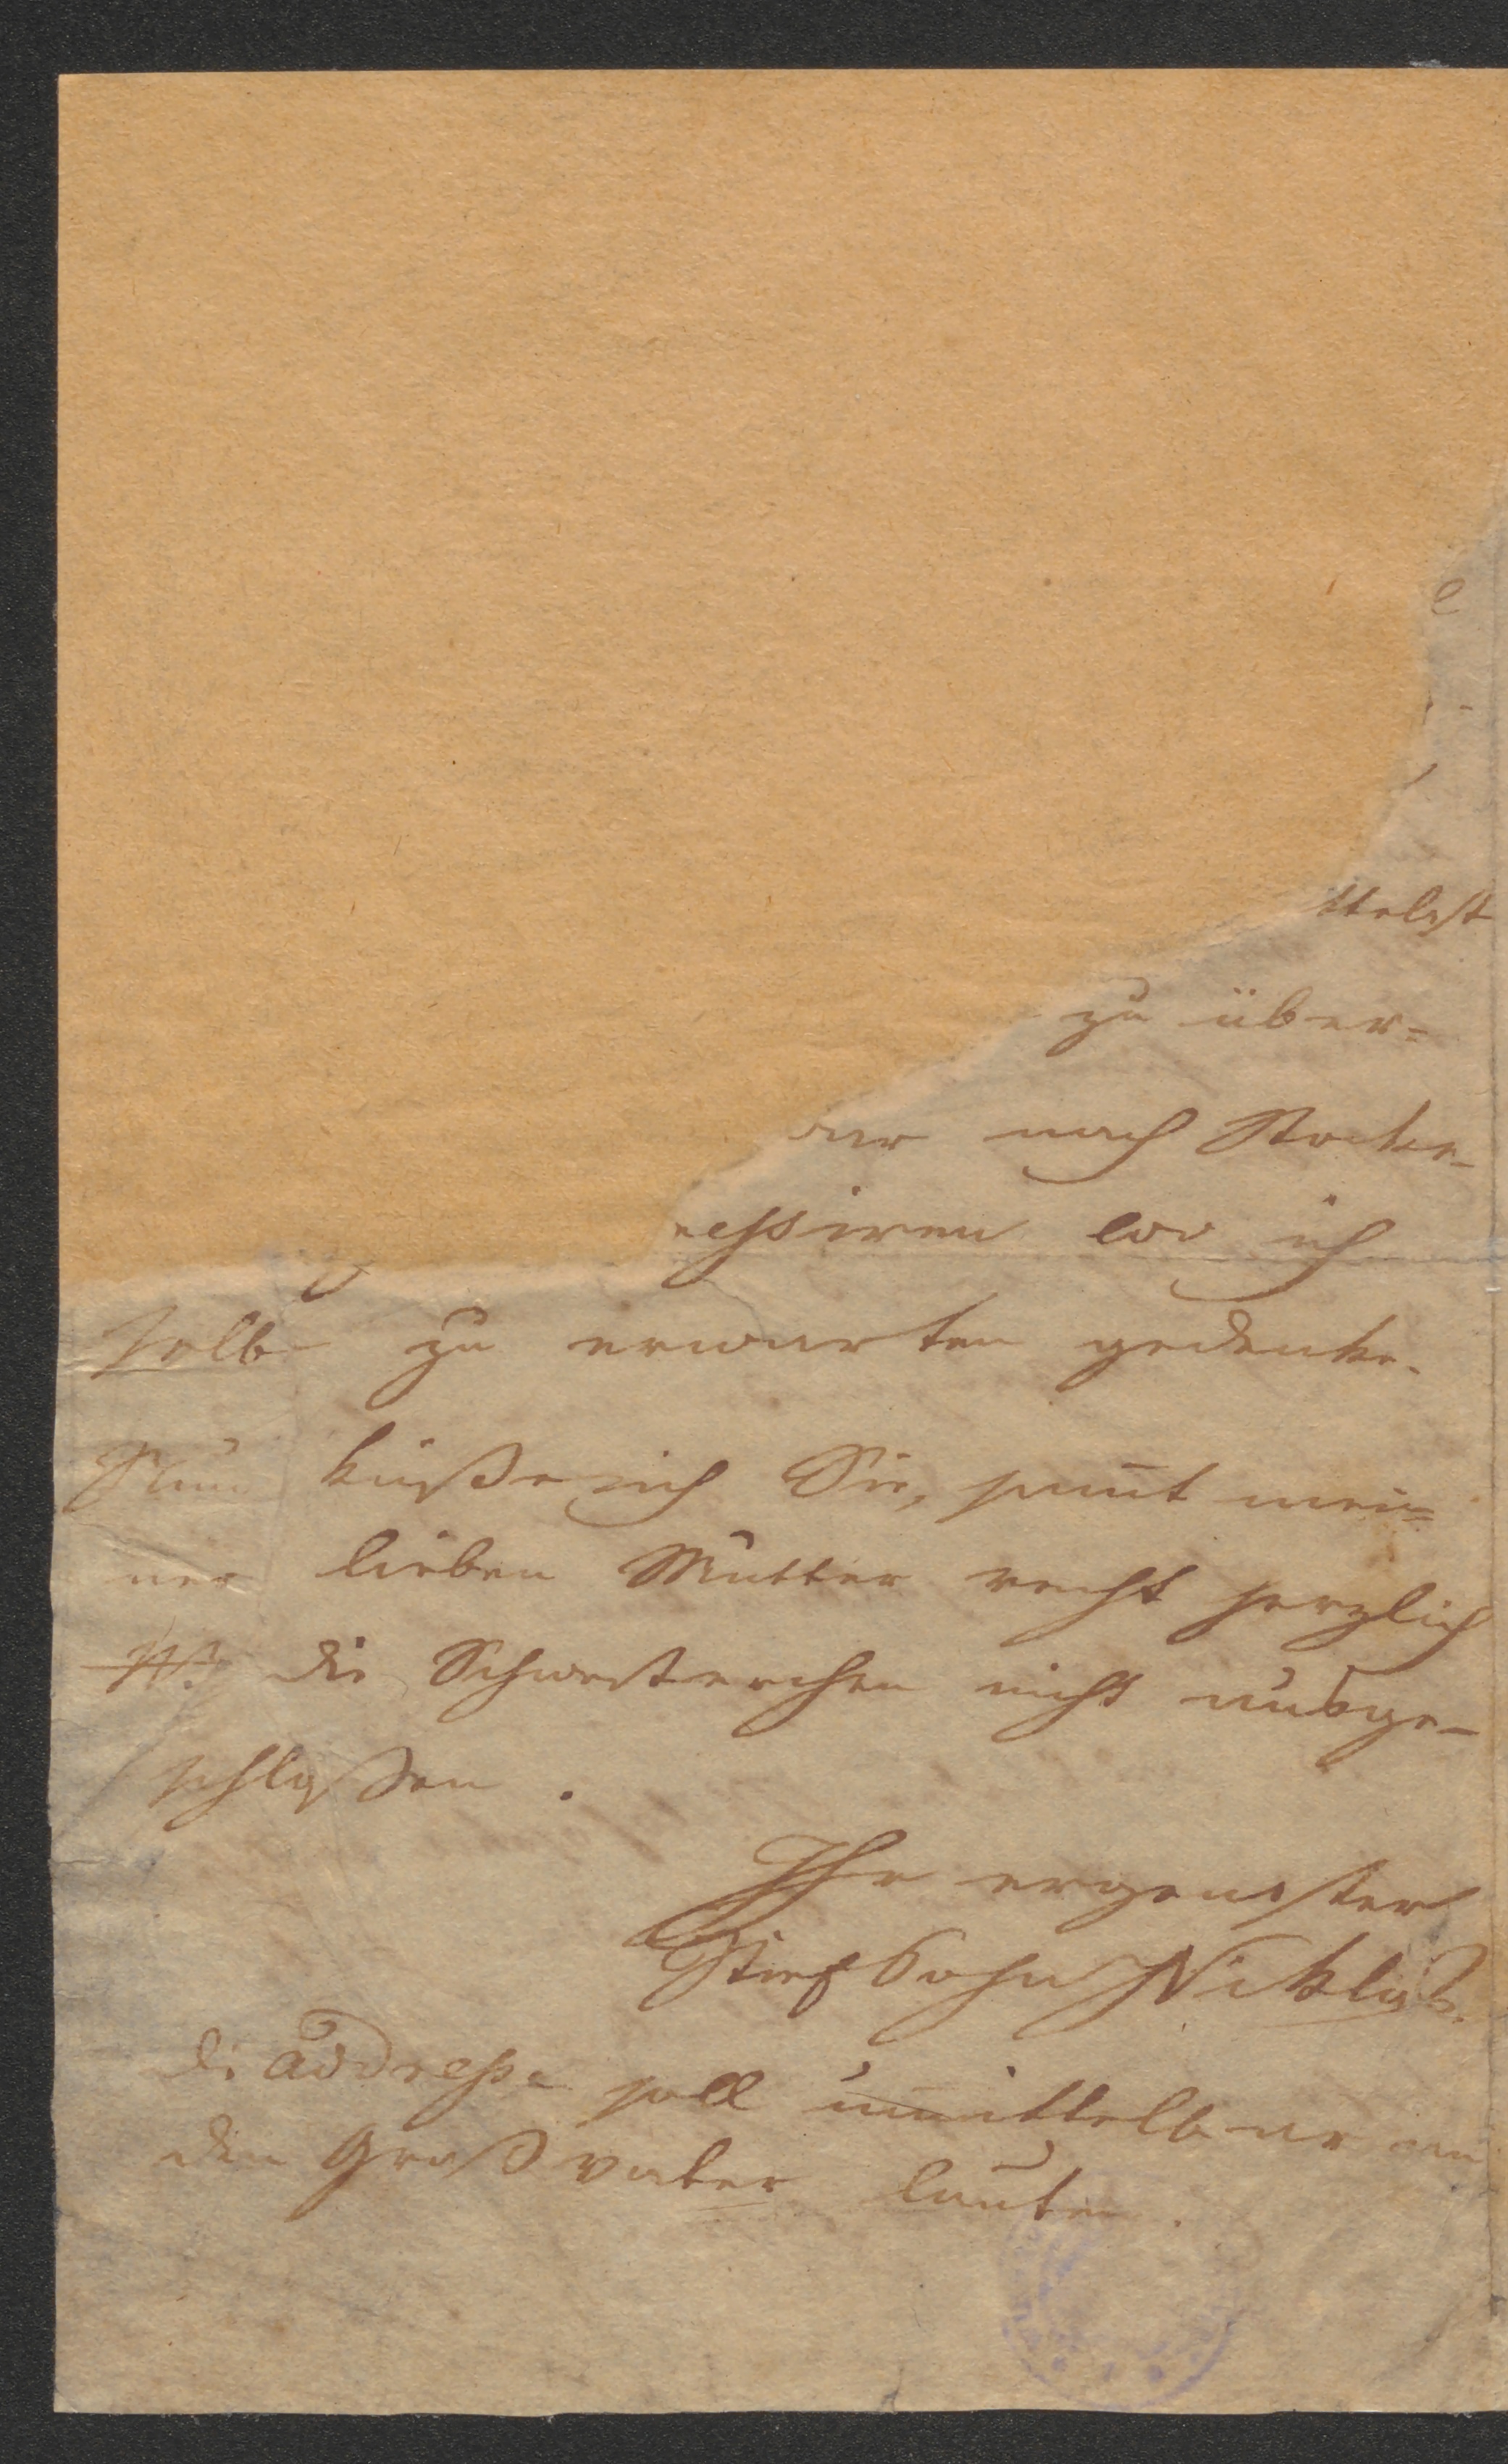 ttelst
zu über=
nach Stocke-
essiren wo ich
selbe zu erwarten gedenke.
Nun küße ich Sie, sam̅t mei=
ner lieben Mutter recht herzlich
die Schwesterchen nicht ausge-
schloßen.
Ihr ergenster
StiefSohn Niklas.
di addresse soll unmittelbar an
den Großvater lauten.